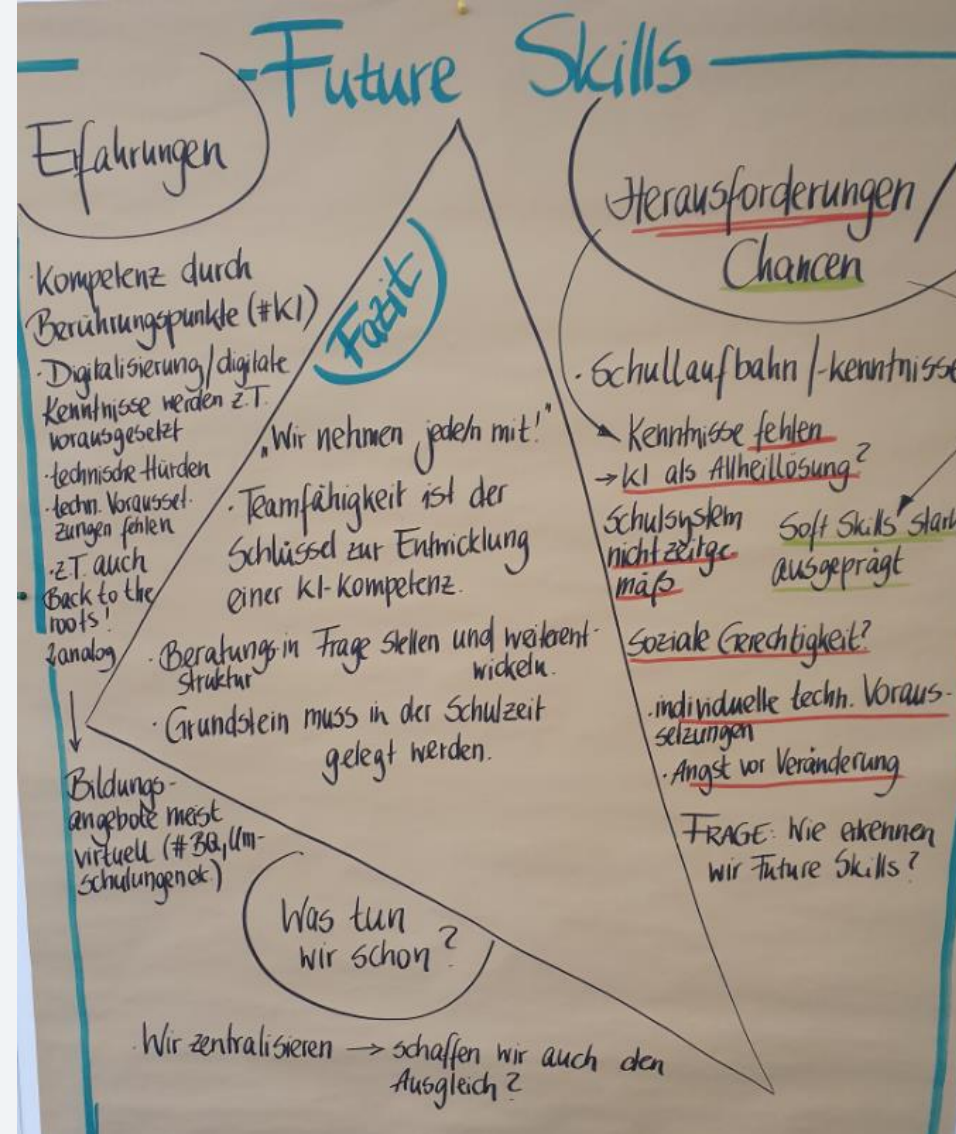 Future Skills
Erfahrungen
· Kompetenz durch
Berührungspunkte (#KI)
· Digitalisierung/digitale
Kenntnisse werden z.T.
vorausgesetzt
· technische Hürden
· techn. Vorausset-
zungen fehlen
· z.T. auch
Back to the
roots!
analog
Bildungs-
angebote meist
virtuell (#BQ, Um-
schulungen
Fazit
„Wir nehmen jede/n mit!"
· Teamfähigkeit ist der
Schlüssel zur Entwicklung
einer KI-Kompetenz.
· Beratungs- in Frage stellen und weiterent-
struktur wickeln.
· Grundstein muss in der Schulzeit
gelegt werden.
Herausforderungen /
Chancen
· Schullaufbahn/-kenntnisse
Kenntnisse fehlen
→ KI als Allheillösung?
Schulsystem
nicht zeitge
mäß
Soft Skills stark
ausgeprägt
Soziale Gerechtigkeit?
· individuelle techn. Voraus-
setzungen
· Angst vor Veränderung
FRAGE: Wie erkennen
wir Future Skills?
Was tun
wir schon?
· Wir zentralisieren → schaffen wir auch den
Ausgleich?